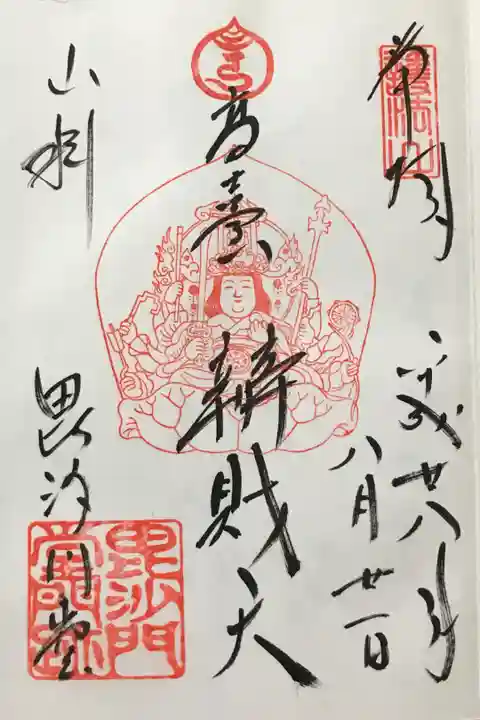 奉拝
平成廿八年
八月廿一日
高臺
辨財天
山科
毘沙門堂
護法山
毘沙門
堂門跡